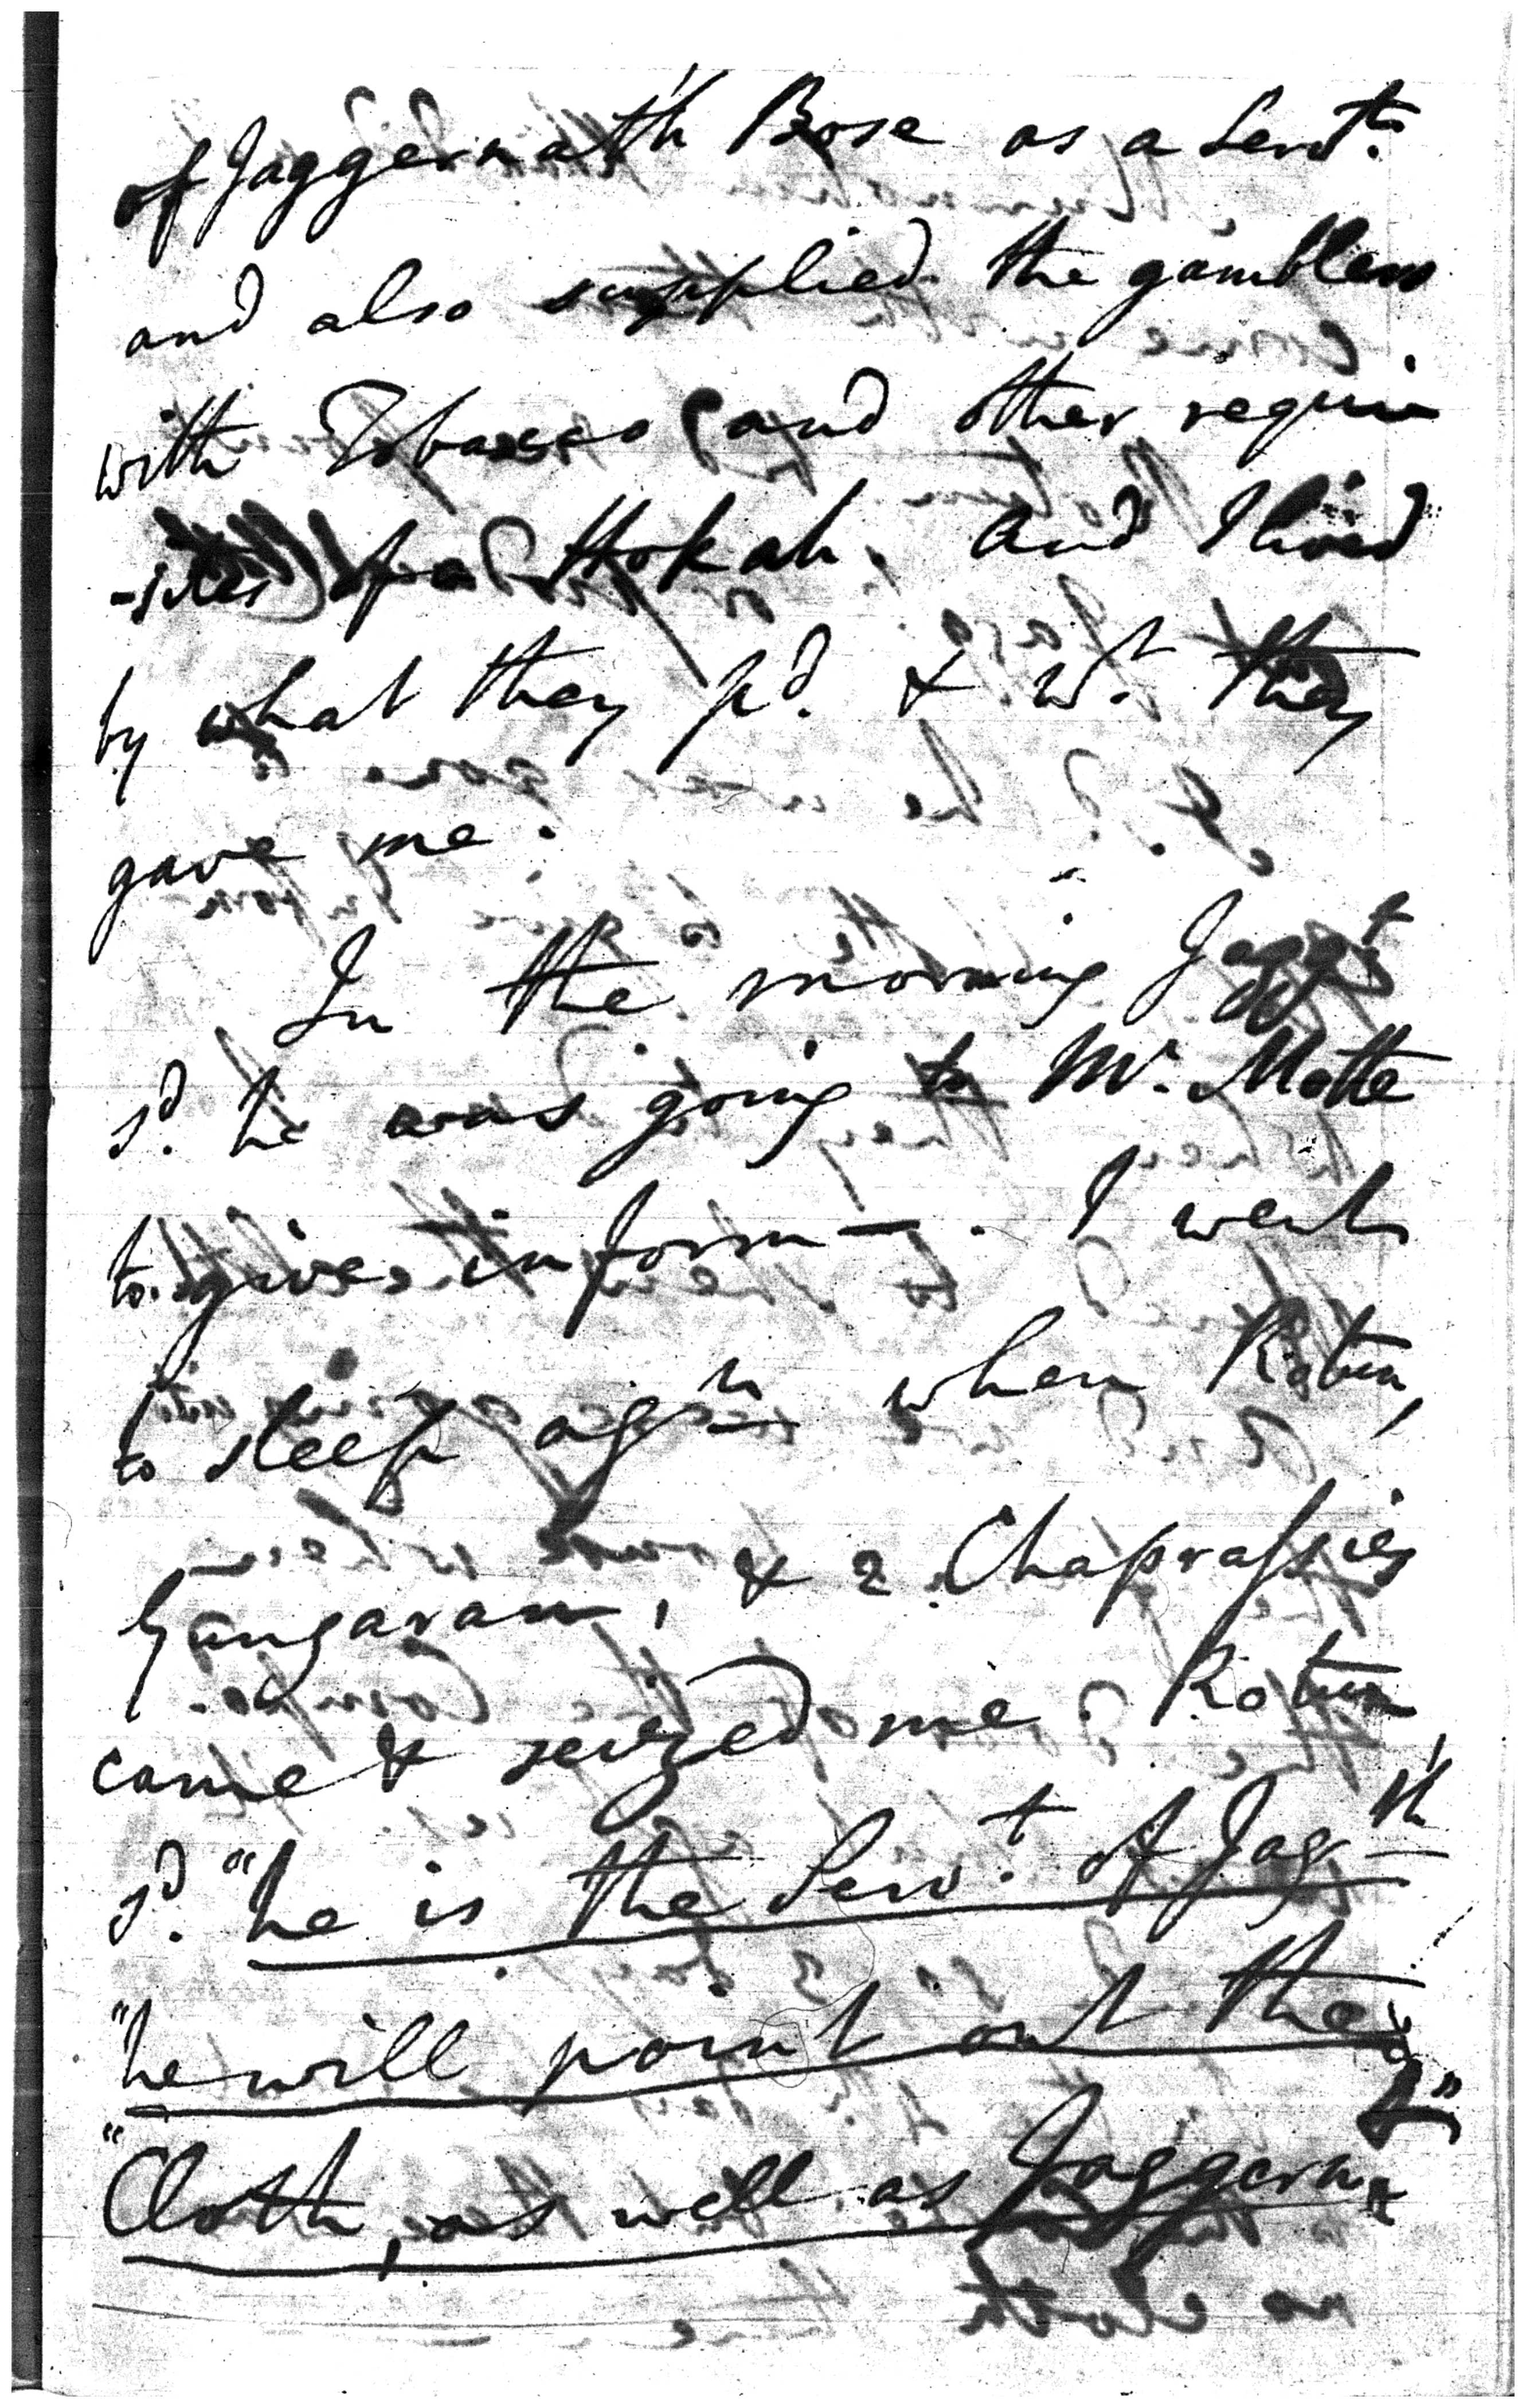 of Jaggernath Bose as a Servt.
and also supplied the gamblers
with Tobacco and other requi
-sites of a Hokah. and I lived
by what they pd. & wt. they
gave me.
In the morning Jaggt
sd. he was going to Mr. Motte
to give inform—. I went
to sleep agn when Rotun,
Gungaram, & 2 Chaprassies
came & seized me. Rotun
sd. "he is the Servt. of Jagth
"he will point out the
"Cloth, as well as Jaggernt"